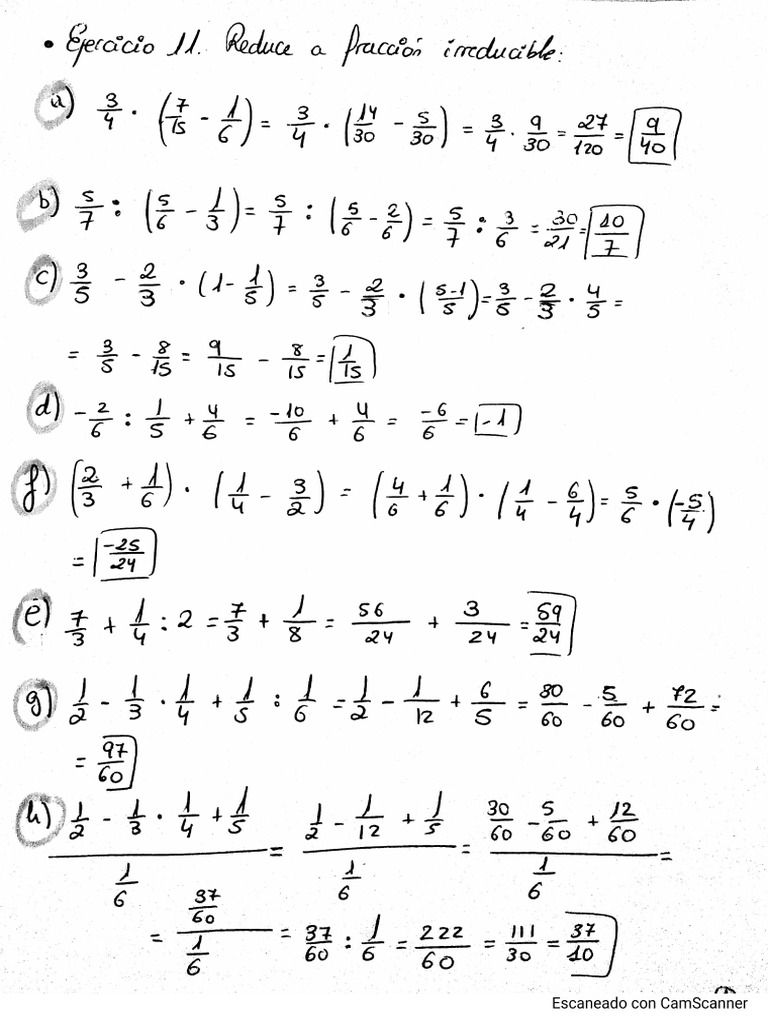 • Ejercicio 11. Reduce a fracción irreducible:
a) 3/4 · (7/15 - 1/6) = 3/4 · (14/30 - 5/30) = 3/4 · 9/30 = 27/120 = 9/40
b) 5/7 : (5/6 - 1/3) = 5/7 : (5/6 - 2/6) = 5/7 : 3/6 = 30/21 = 10/7
c) 3/5 - 2/3 · (1 - 1/5) = 3/5 - 2/3 · (5-1/5) = 3/5 - 2/3 · 4/5 =
= 3/5 - 8/15 = 9/15 - 8/15 = 1/15
d) -2/6 : 1/5 + 4/6 = -10/6 + 4/6 = -6/6 = -1
f) (2/3 + 1/6) · (1/4 - 3/2) = (4/6 + 1/6) · (1/4 - 6/4) = 5/6 · (-5/4)
= -25/24
e) 7/3 + 1/4 : 2 = 7/3 + 1/8 = 56/24 + 3/24 = 59/24
g) 1/2 - 1/3 · 1/4 + 1/5 : 1/6 = 1/2 - 1/12 + 6/5 = 30/60 - 5/60 + 72/60 =
= 97/60
h) (1/2 - 1/3 · 1/4 + 1/5)/(1/6) = (1/2 - 1/12 + 1/5)/(1/6) = (30/60 - 5/60 + 12/60)/(1/6) =
= (37/60)/(1/6) = 37/60 : 1/6 = 222/60 = 111/30 = 37/10
Escaneado con CamScanner